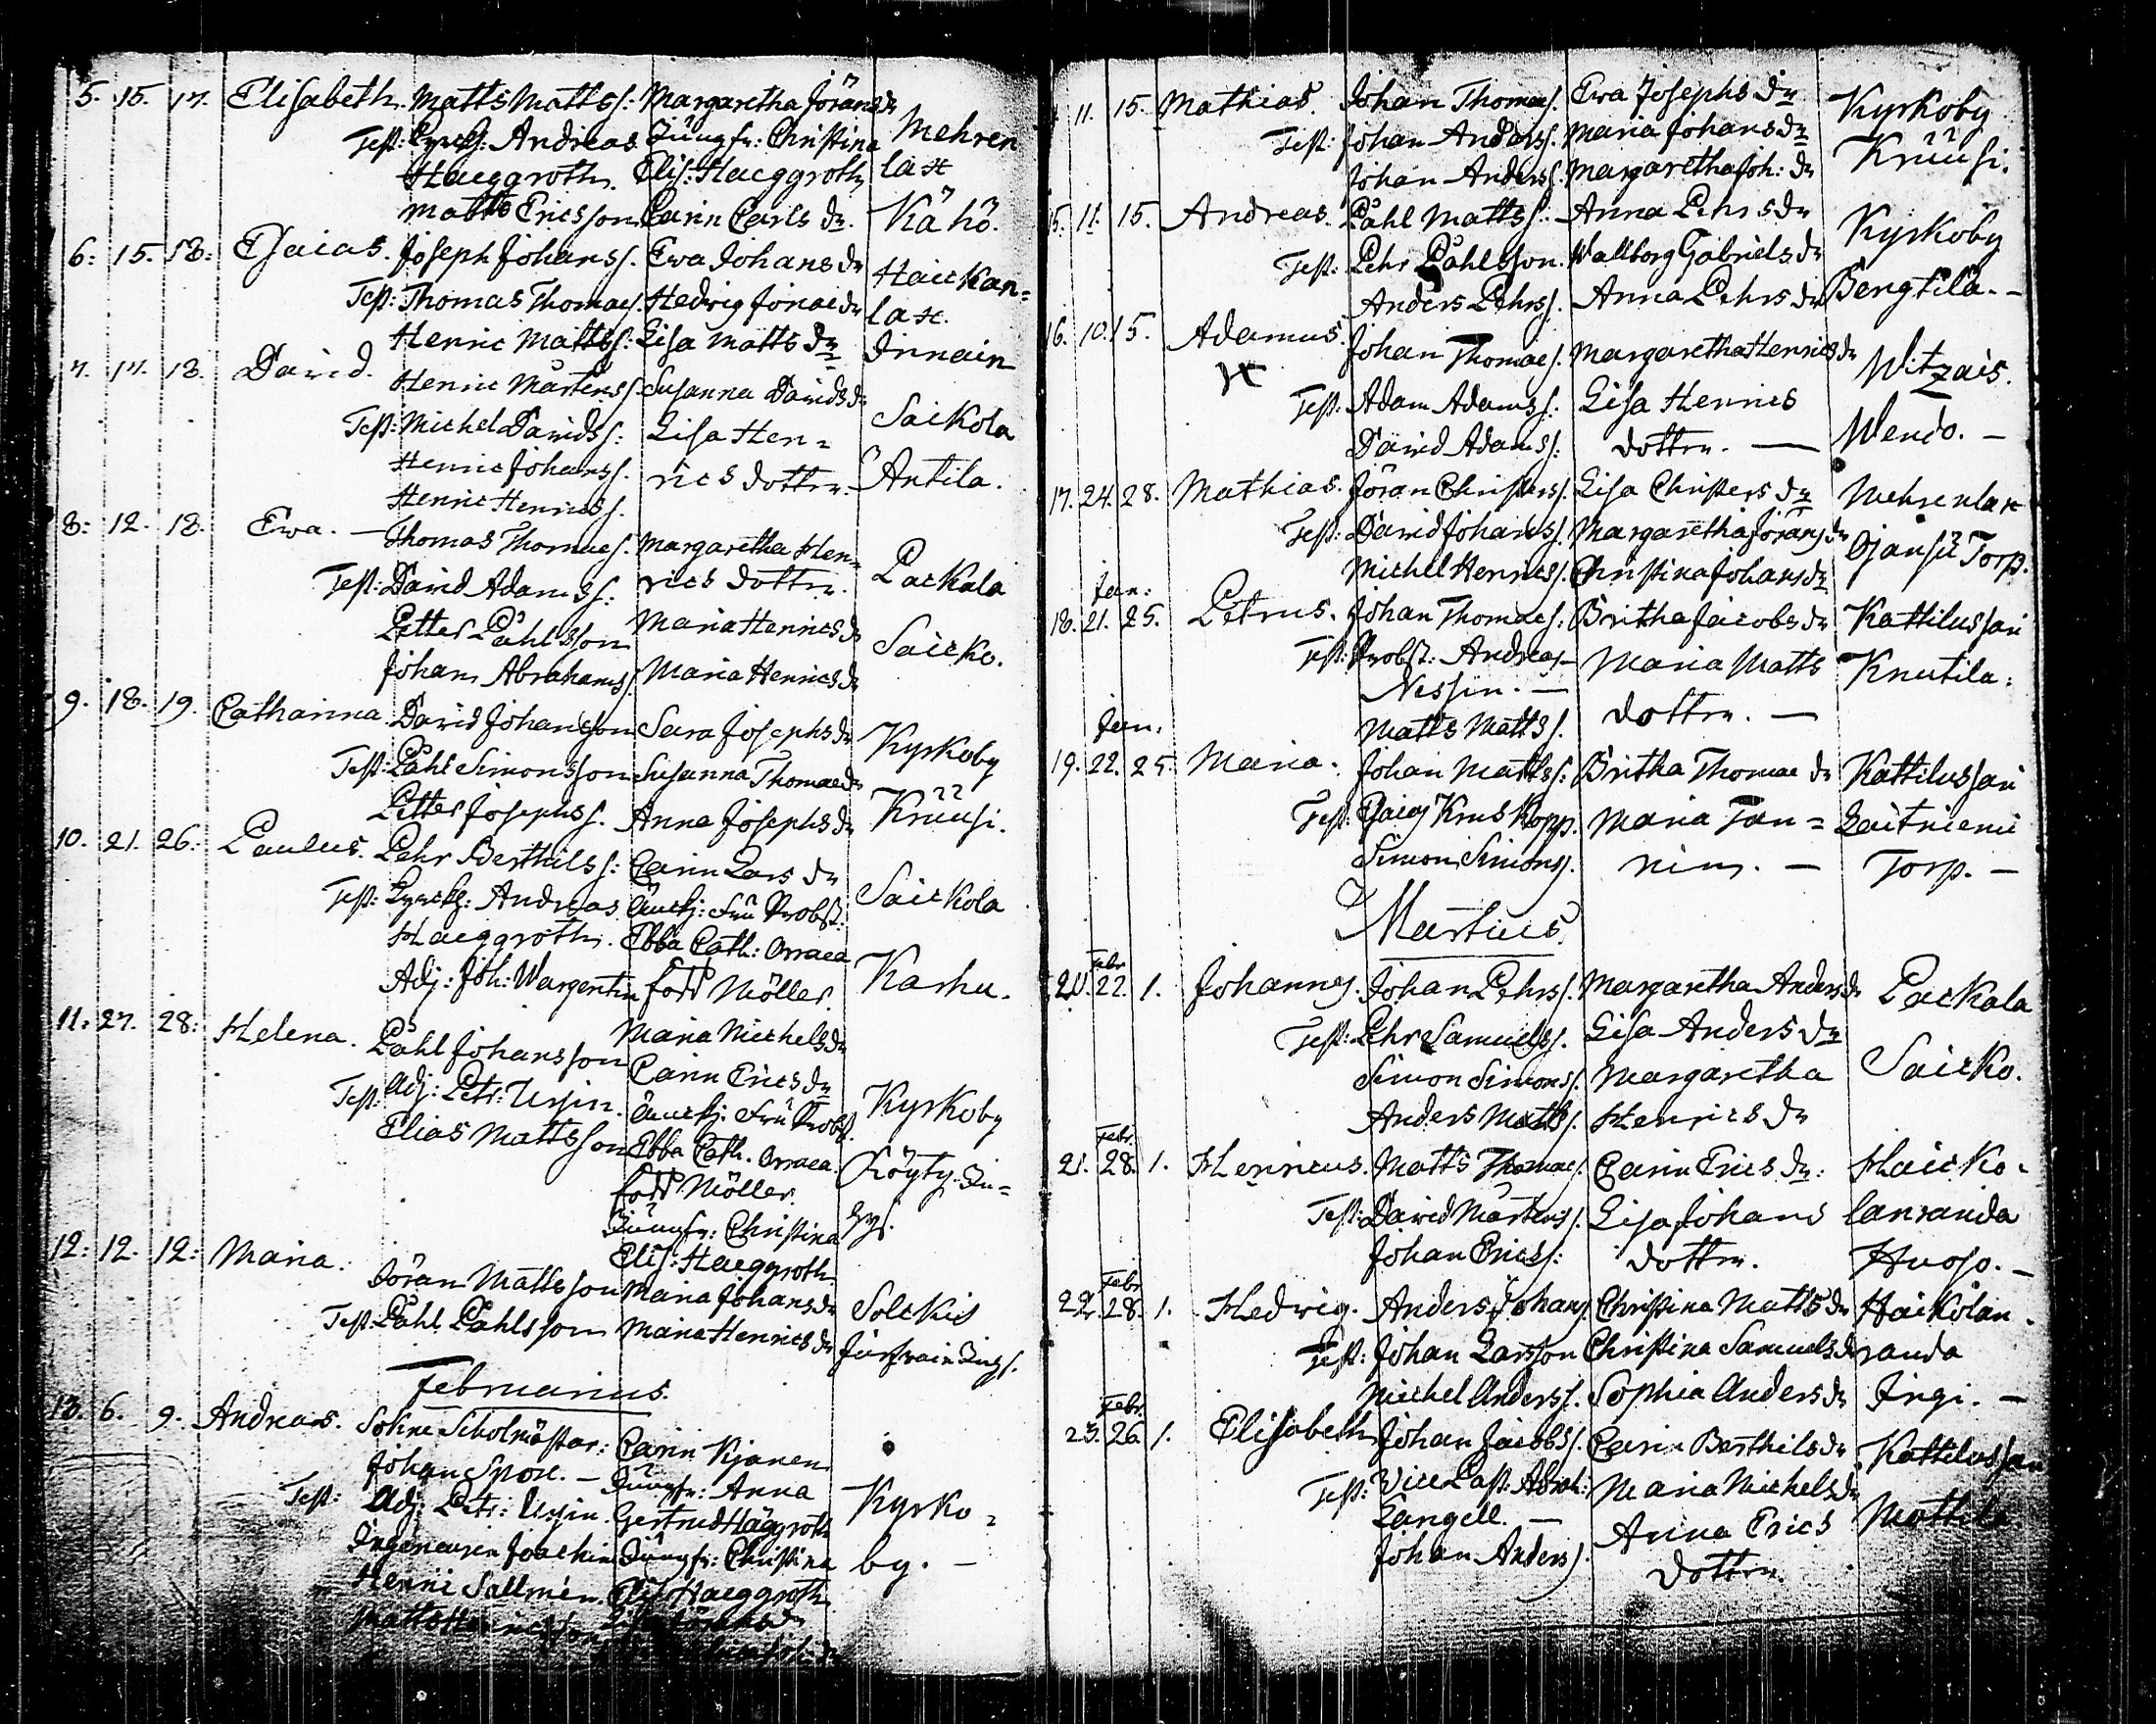 5. 15. 17. Elisabeth. Matts Mattss: Margaretha Jörans dr Mehren
Test: Andreas Jungfr: Christina lax
Haeggroth. Elis: Haeggroth
Matts Ericsson Carin Carls dr. Kähö.
6: 15. 18: Esaias. Joseph Johanss. Ewa Johans dr Haickan=
Test: Thomas Thomaes. Hedwig Jonae dr lax.
Henric Mattss: Lisa Matts dr Innain
7. 17. 18. David. Henric Mårtenss. Susanna Davids dr
Test: Michel Davids s: Lisa Hen= Saikola
Henric Johanss. rics dotter. Antila.
Henric Henricss.
8: 12. 18. Ewa. — Thomas Thomaes. Margaretha Hen=
Test: David Adams s: rics dotter. Packala
Petter Påhlsson Maria Henrics dr
Johan Abrahams s. Maria Henrics dr Saicko.
9. 18. 19. Catharina. David Johansson Sara Josephs dr
Test: Påhl Simonsson Susanna Thomae dr Kyrkoby
Petter Josephs s. Anna Josephs dr Kruusi.
10. 21. 26: Paulus. Pehr Berthils s: Carin Lars dr
Test: Andreas Fru Probst: Saickola
Haeggroth. Ebba Cath: Orraea
Adj: Joh: Wargentin född Möller Karhu.
11: 27. 28: Helena. Påhl Johansson Maria Michels dr
Carin Erics dr
Test: Adj: Petr: Ursin. Fru Probst. Kyrkoby
Elias Mattsson Ebba Cath. Orraea. Köyty In=
född Möller. hys.
Jungfr: Christina
Elis: Haeggroth
12: 12. 12: Maria. Jöran Mattsson Maria Johans dr
Test: Påhl Påhlsson Maria Henrics dr
Februarius.
13. 6. 9. Andreas. Sokne Scholmästar: Carin Kjanen
Johan Spore. — Jungfr: Anna
Test: Adj: Petr: Ursin. Gertrud Häggroth Kyrko=
Ingenieuren Joachim Jungfr: Christina by. —
Henric Sallmén. Elis: Haeggroth
11. 15. Mathias. Johan Thomaes. Ewa Josephs dr Kyrkoby
Test: Johan Anderss. Maria Johans dr Kruusi.
Johan Anderss. Margaretha Joh: dr
15. 11. 15. Andreas. Påhl Mattss. Anna Pehrs dr Kyrkoby
Test: Pehr Påhlsson. Wallborg Gabriels dr
Anders Pehrss. Anna Pehrs dr Bengtila. —
16. 10. 15. Adamus. Johan Thomaes. Margaretha Henrics dr Witzais.
Test: Adam Adams s: Lisa Henrics
David Adams s: dotter. — Wendo. —
17. 24. 28. Mathias. Jöran Christerss. Lisa Christers dr Mehrenlax
Test: David Johanss. Margaretha Jörans dr Ojansu Torp.
Michel Henricss. Christina Johans dr
Jan:
18. 21. 25. Petrus. Johan Thomaes: Britha Jacobs dr Kattilussari
Test: Probst: Andreas Maria Matts Knutila.
Nessin. — dotter. —
Matts Mattss.
Jan.
19. 22. 25. Maria. Johan Mattss: Britha Thomae dr Kattilussari
Test: Esaias Krus Kopp. Maria Tan= Laitniemi
Simon Simonss. nin. — Torp. —
Martius
Febr
20. 22. 1. Johannes. Johan Pehrss. Margaretha Anders dr Packala
Test: Pehr Samuelss. Lisa Anders dr
Simon Simonss. Margaretha Saicko.
Anders Mattss. Henrics dr
Febr.
21. 28. 1. Henricus. Matts Thomaes. Carin Erics dr: Haicko-
Test: David Mårtenss. Lisa Johans lanranda
Johan Ericss: dotter. Huoso. —
Febr
22. 28. 1. Hedwig. Anders Johanss Christina Matts dr Haikolan
Test: Johan Larsson Christina Samuels dr randa
Michel Anderss. Sophia Anders dr Jirgi. —
Febr.
23. 26. 1. Elisabeth Johan Jacobss. Carin Berthils dr. Kattilussari
Test: Vice Past: Abrah: Maria Michels dr
Langell. — Anna Erics Mattila
Johan Anderss. dotter.